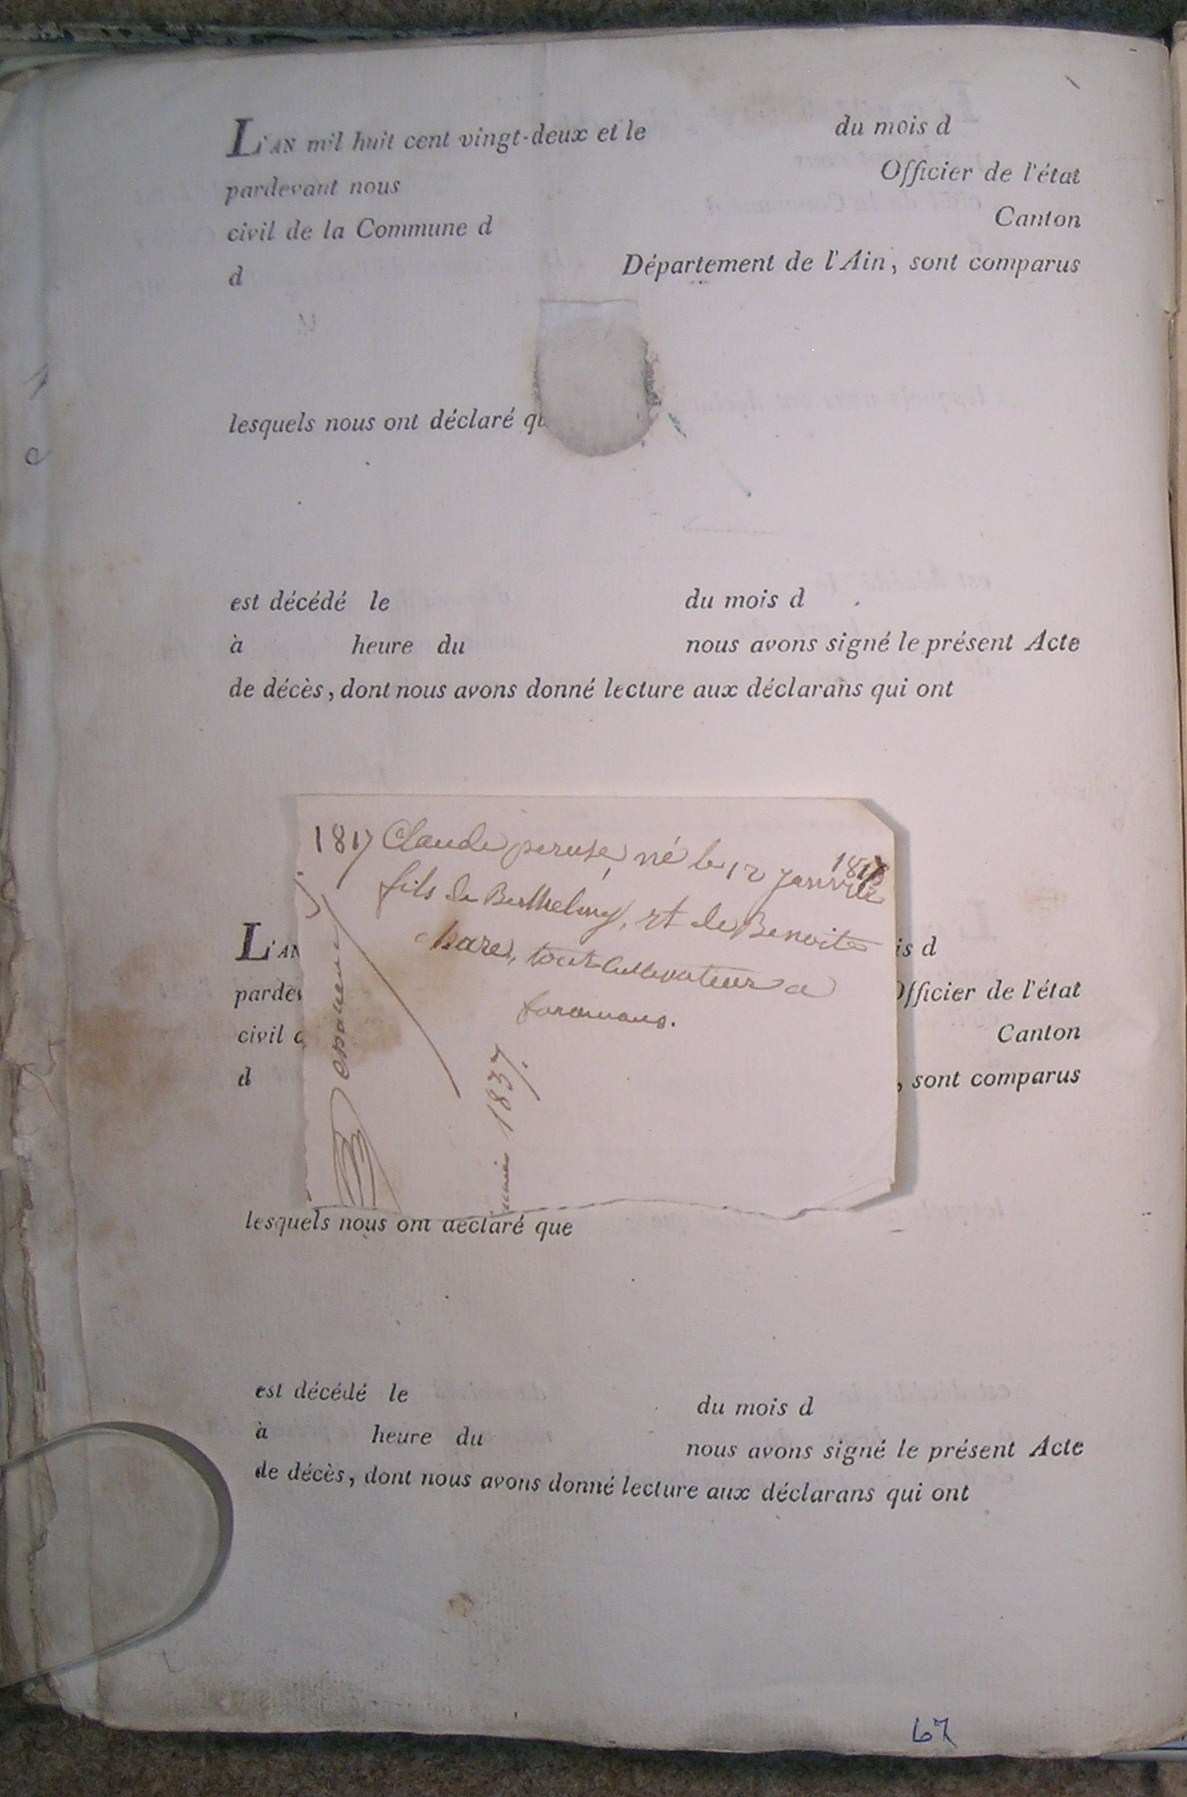 L'AN mil huit cent vingt-deux et le du mois d
pardevant nous Officier de l'état
civil de la Commune d Canton
d Département de l'Ain, sont comparus
lesquels nous ont déclaré qu
est décédé le du mois d
à heure du nous avons signé le présent Acte
de décès, dont nous avons donné lecture aux déclarans qui ont
1817 Claude peruse, né le 12 janvier 1817
fils de Berthelmy, et de Benoite
tout Cultivateur a
faramans.
1837.
L'AN is d
pardev Officier de l'état
civil d Canton
d , sont comparus
lesquels nous ont déclaré que
est décédé le du mois d
à heure du nous avons signé le présent Acte
de décès, dont nous avons donné lecture aux déclarans qui ont
67